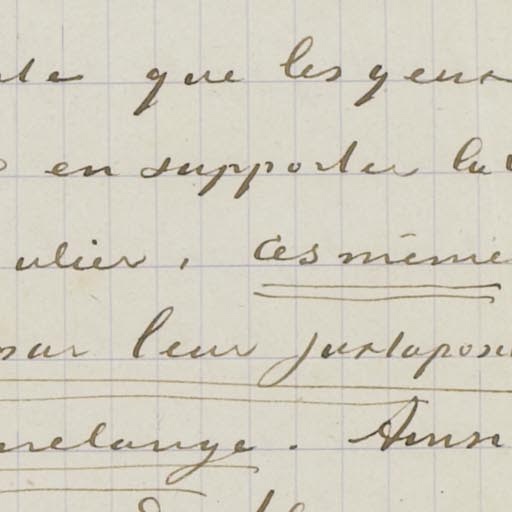 que les yeux
en supporter la
ulier, ces même
par leur juxtaposi
melange. Ainsi